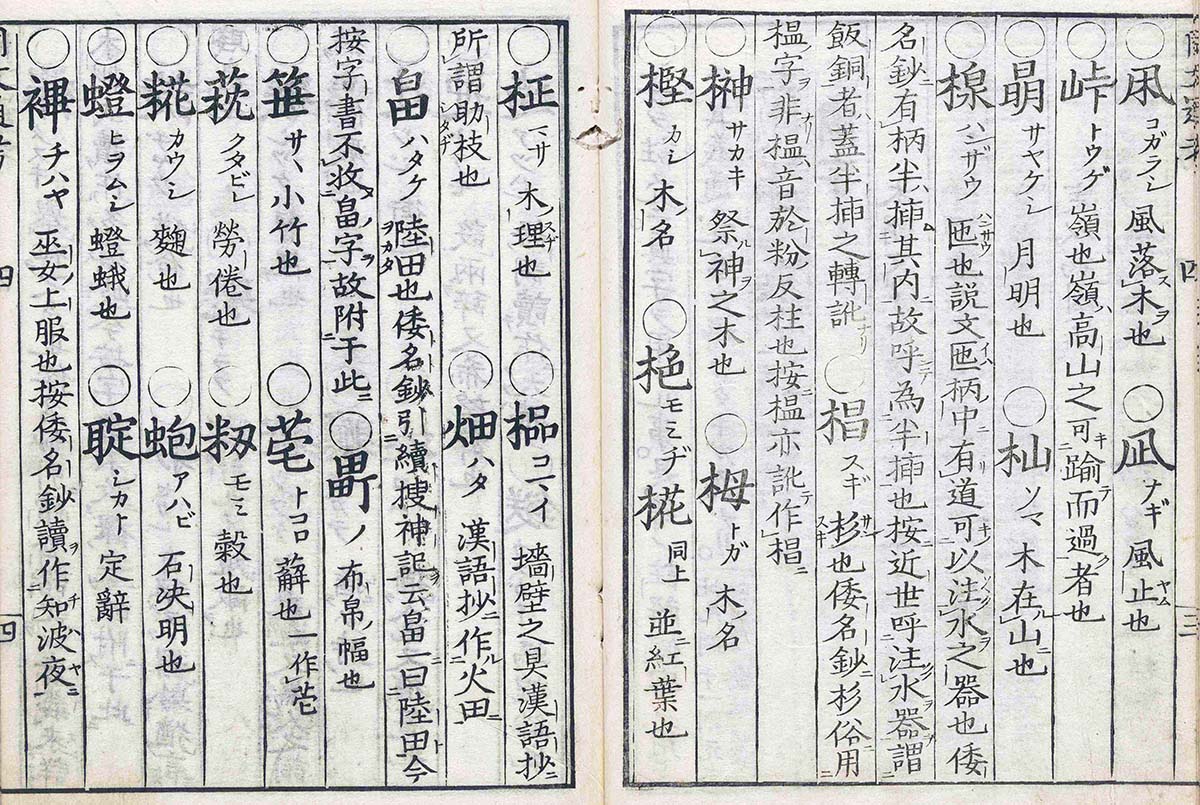 〇凩 コガラシ 風落木也 〇凪 ナギ 風止也
峠 トウゲ 嶺也嶺高山之可踰而過者也
〇 サヤケシ 月明也 〇杣 ソマ 木在山也
〇楾 ハンザウ 匜也説文匜柄中有道可以注水之器也倭
名鈔有柄半挿其内故呼為半挿也按近世呼注水器謂
飯銅者蓋半挿之轉訛 〇椙 スギ 杉也倭名鈔杉俗用
榲字非榲音於粉反柱也按榲亦訛作椙
〇榊 サカキ 祭神之木也 〇栂 トガ 木名
〇樫 カシ 木名 〇栬 モミヂ 椛 同上 並紅葉也
〇柾 マサ 木理也 〇榀 コマイ 墻壁之具漢語抄
所謂助枝也 〇畑 ハタ 漢語抄作火田
〇畠 ハタケ 陸田也倭名鈔引續搜神記云畠一曰陸田今
按字書不收畠字故附于此 〇 ノ 布帛幅也
〇笹 サヽ 小竹也 〇 トコロ 薢也一作
〇 クタビレ 勞倦也 〇籾 モミ 穀也
〇糀 カウシ 麴也 〇蚫 アハビ 石决明也
〇 ヒヲムシ 蛾也 〇聢 シカト 定辭
〇襅 チハヤ 巫女上服也按倭名鈔讀作知波夜
四
四